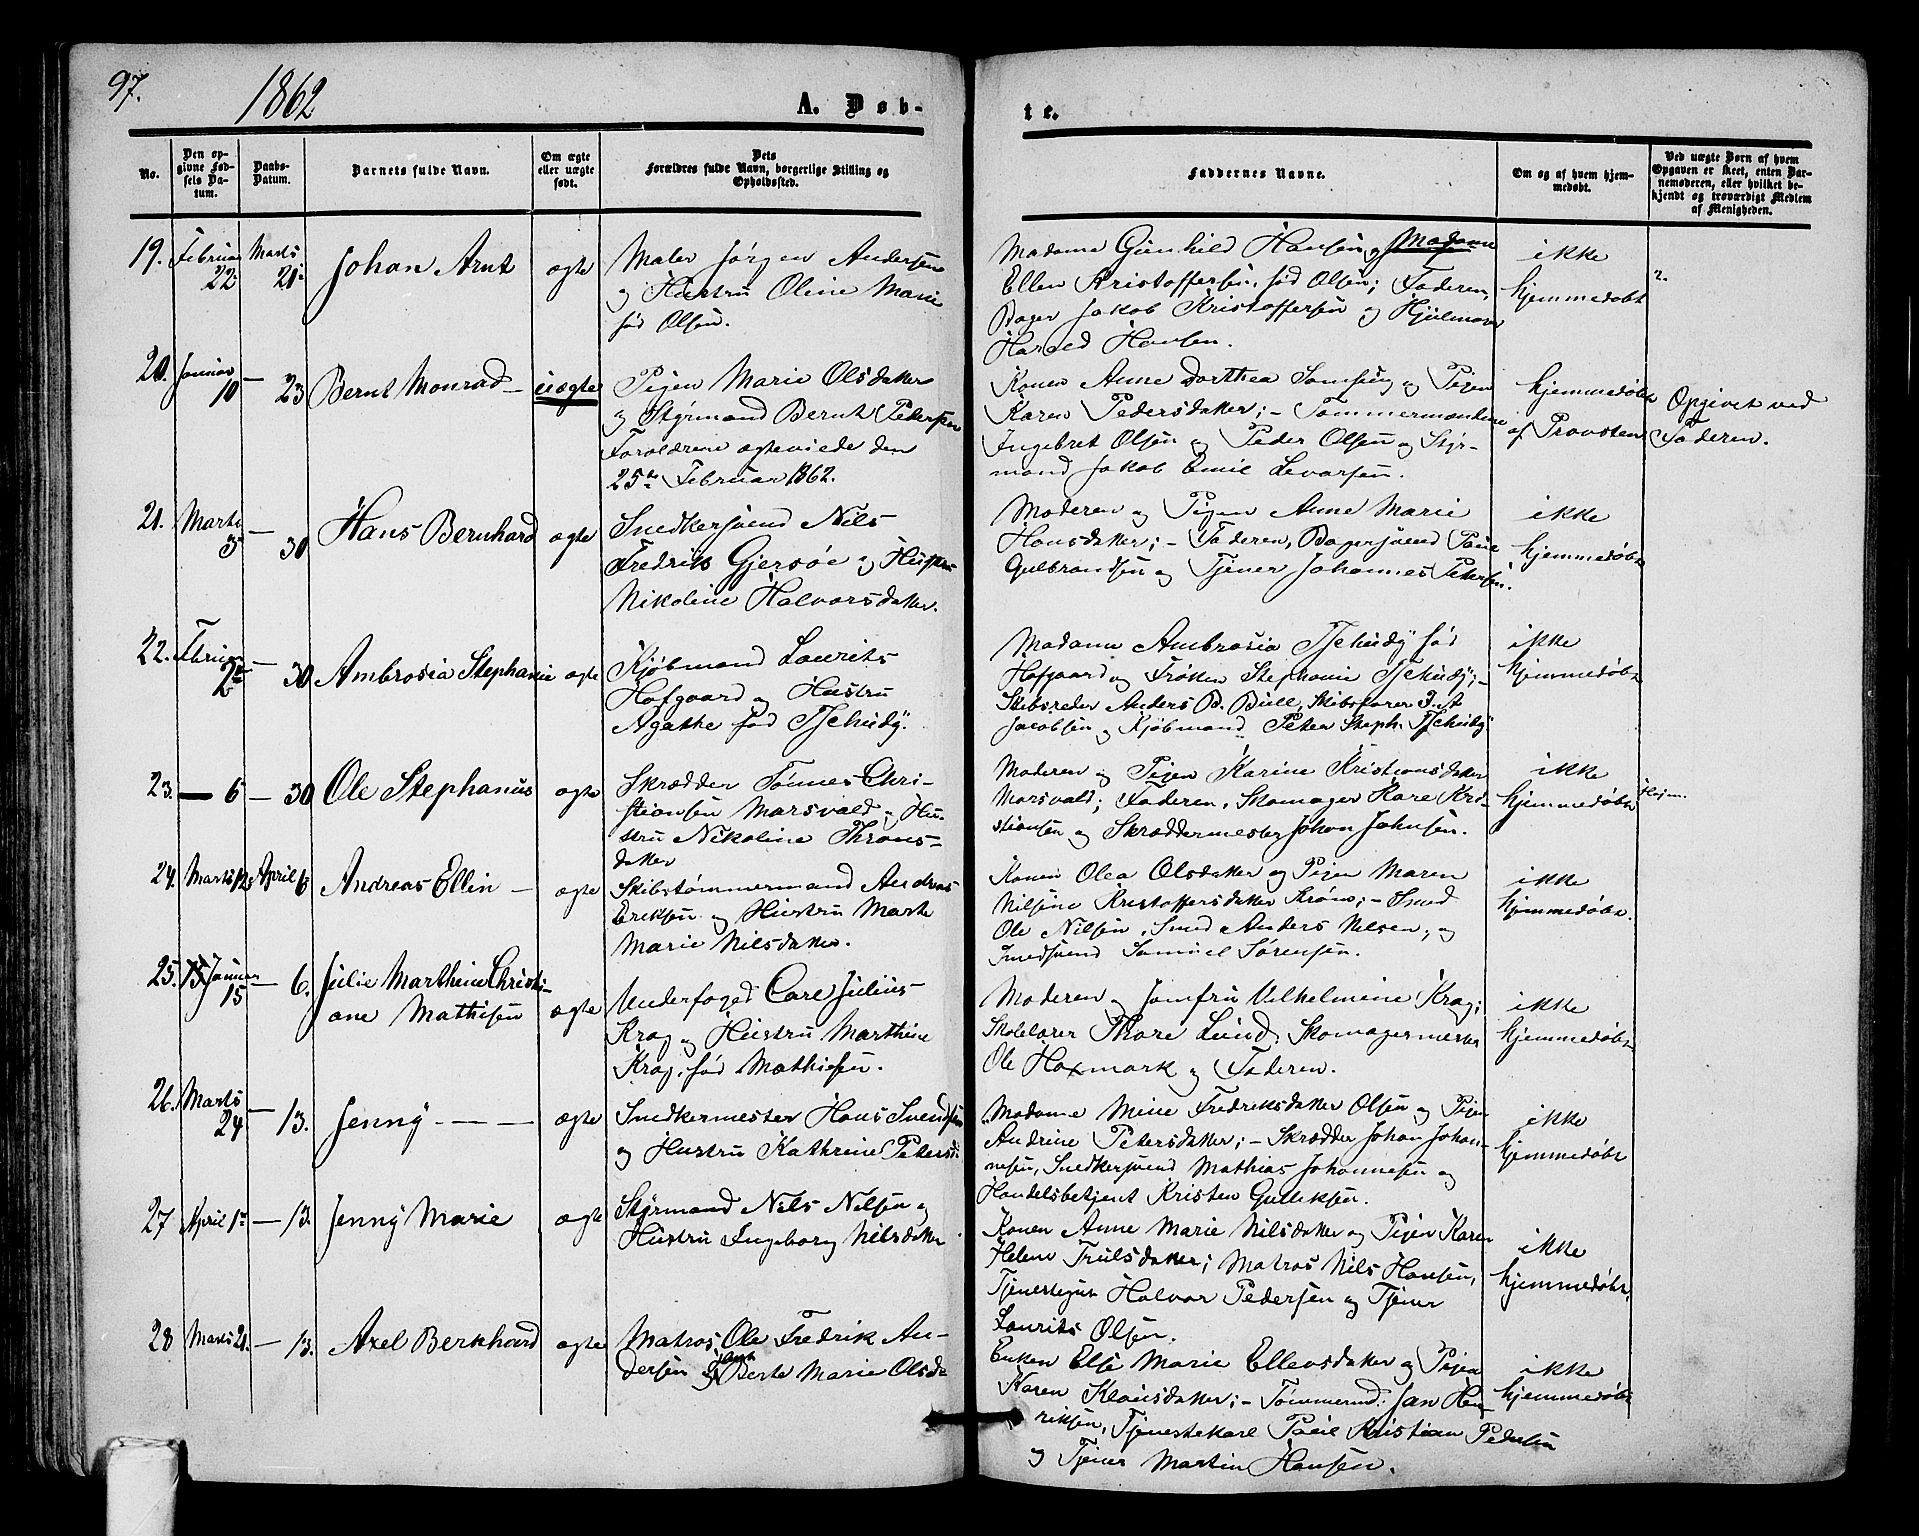 97.
1862
A. Døb-
te.
No.
Den op-
givne Fød-
sels Da-
tum.
Daabs-
Datum.
Barnets fulde Navn.
Om ægte
eller uægte
født.
Dets
Forældres fulde Navn, borgerlige Stilling og
Opholdssted.
Faddernes Navne.
Om og af hvem hjem-
medøbt.
Ved uægte Børn af hvem
Opgaven er skeet, enten Bar-
nemoderen, eller hvilket be-
kjendt og troværdigt Medlem
af Menigheden.
19. Februar 22. Marts 21. Johan Arnt ægte
Maler Jørgen Andersen
og Hustru Oline Marie
fød Olsen.
Madame Gunhild Hansen og Madame
Ellen Kristoffersen, fød Olsen; Faderen,
Bager Jakob Kristoffersen og
Harald Hansen.
ikke
hjemmedøbt
20. Januar 10 — 23 Bernt Monrad — uægte
Pigen Marie Olsdatter
og Styrmand Bernt Pedersen
Forældrene ægteviede den
25de Februar 1862.
Konen Anne Dorthea og Pigen
Karen Pedersdatter; — Tømmermændene
Ingebret Olsen og Peder Olsen og Styr-
mand Jakob Emil Levorsen.
hjemmedøbt
af Provsten
Opgivet ved
Faderen.
21. Marts 3 — 30 Hans Bernhard ægte
Snedkersvend Nils
Fredrik Gjersøe og Hustru
Nikoline Halvorsdatter.
Moderen og Pigen Anne Marie
Hansdatter; — Faderen, Bagersvend Paul
Gulbrandsen og Tjener Johannes Petersen.
ikke
hjemmedøbt
22. Februar 2den — 30 Ambrosia Stephanie ægte
Kjøbmand Laurits
Hofgaard og Hustru
Agathe fød Tschudy.
Madame Ambrosia Tschudy fød
Hofgaard og Frøken Stephanie Tschudy; —
Skibsreder Anders B. Bull, Skibsfører
Jacobsen og Kjøbmand Peter Steph. Tschudy
ikke
hjemmedøbt
23. — 6 — 30 Ole Stephanus ægte
Skrædder Tønnes Chri-
stiansen Marsvald og Hu-
stru Nikoline Throns-
datter
Moderen og Pigen Karine Kristiansdatter
Marsvald; Faderen, Skomager Kristiansen og Skræddermester Johan Johnsen.
ikke
hjemmedøbt
24. Marts 12 April 6 Andreas Ellin — ægte
Skibstømmermand Andreas
Eriksen og Hustru Marte
Marie Nilsdatter.
Konen Olea Olsdatter og Pigen Maren
Nilsine Kristoffersdatter; — Smed
Ole Nilsen, Smed Anders Nelsen, og
Smedsvend Samuel Sørensen.
ikke
hjemmedøbt.
25. Januar 15 — 6. Julie Marthine Christi-
ane Mathisen ægte
Underfoged Carl Julius
Krag og Hustru Marthine
Krag, fød Mathisen.
Moderen og Jomfru Vilhelmine Krag;
Skolelærer Thore Lund, Skomagermester
Ole Haxmark og Faderen.
ikke
hjemmedøbt
26. Marts 24 — 13. Jenny — — — ægte
Snedkermester Hans Svendsen
og Hustru Kathrine Petersd.
Madame Mine Fredriksdatter Olsen og Pigen
Andrine Petersdatter; — Skrædder Johan Johan-
nesen, Snedkersvend Mathias Johannesen og
Handelsbetjent Kristen Gulliksen.
ikke
hjemmedøbt
27 April 1ste — 13. Jenny Marie ægte
Styrmand Nils Nilsen og
Hustru Ingeborg Nilsdatter
Konen Anne Marie Nilsdatter og Pigen Karen
Helene Trulsdatter; Matros Nils Hansen,
Tjenestegut Halvor Pedersen og Tjener
Laurits Olsen.
ikke
hjemmedøbt.
28 Marts 21. — 13. Axel Bernhard ægte
Matros Ole Fredrik An-
dersen og Berte Marie Olsda
Enken Else Marie Ellevsdatter og Pigen
Karen Klausdatter; — Tømmermd. Jan Hen-
riksen, Tjenestekarl Paul Kristian Pedersen
og Tjener Martin Hansen.
ikke
hjemmedøbt